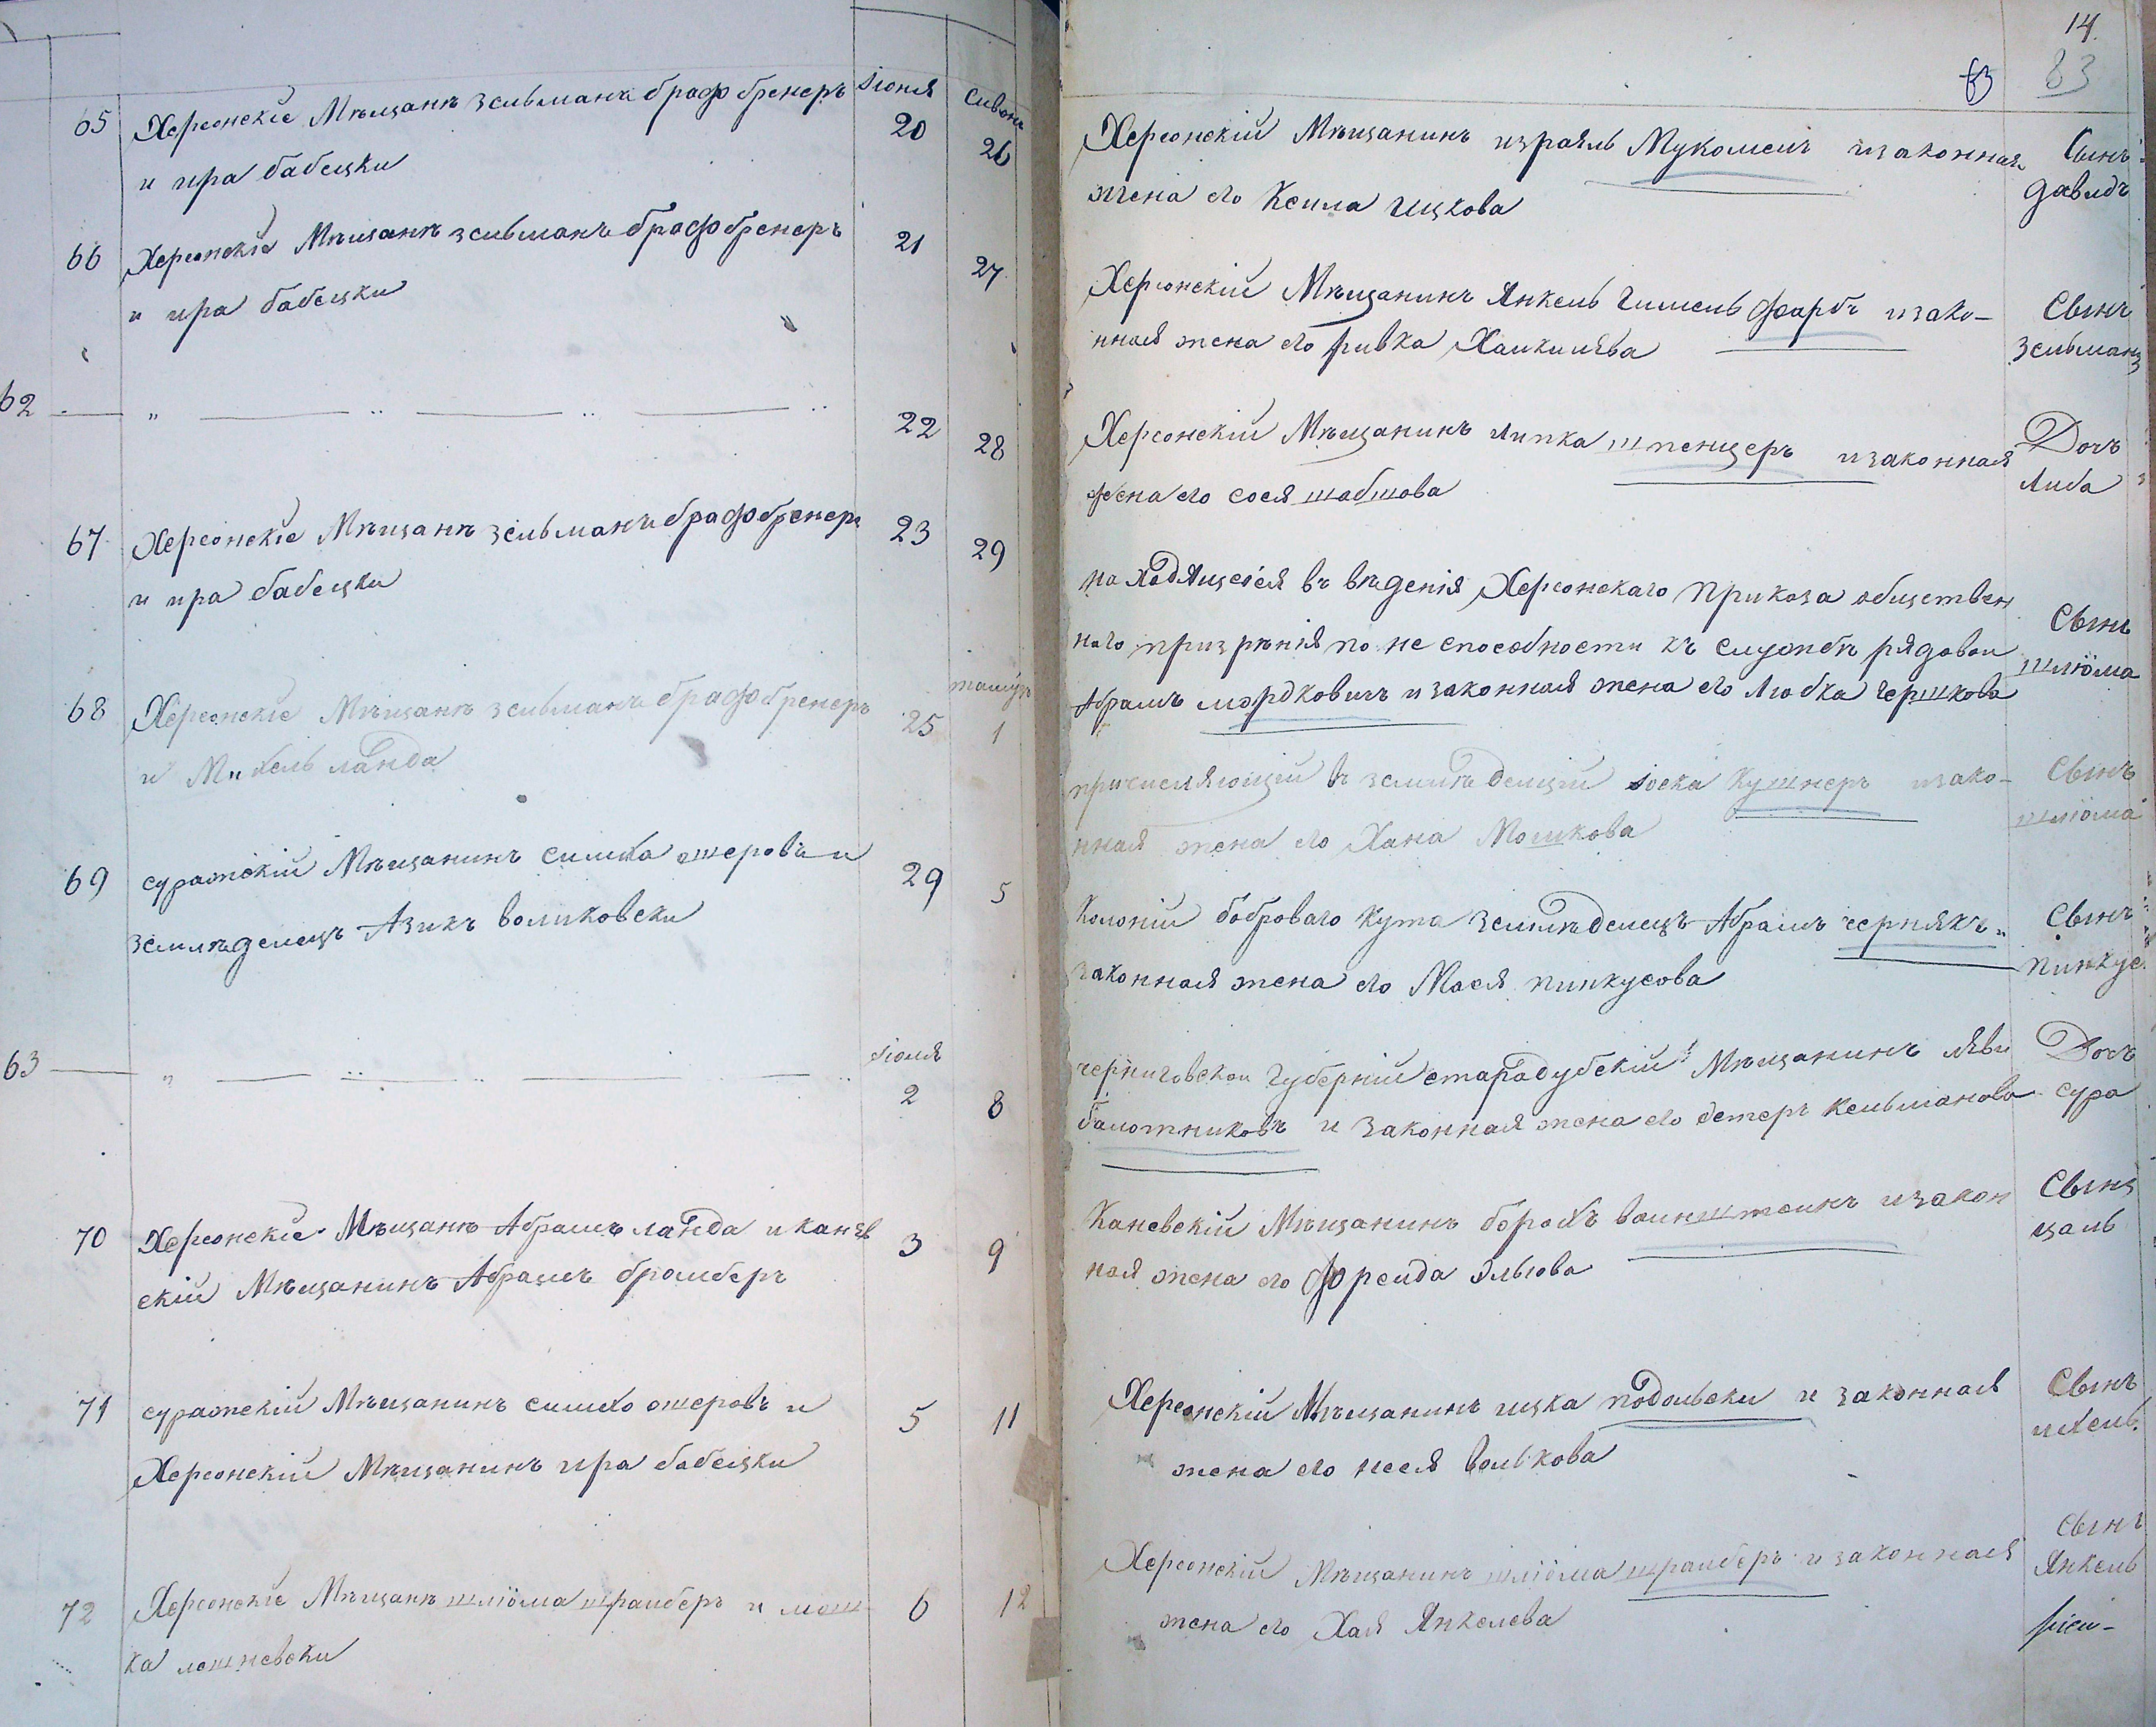 Іюня
Сивонъ
65 Херсонскіе Мѣщанѣ зельманъ брафбренеръ 20 26
и ира бабецки
66 Херсонскіе Мѣщанѣ зельманъ брафбренеръ 21 27
и ира бабецки
62 — " — .. — .. — .. 22 28
67 Херсонскіе Мѣщанѣ зельманъ брафбренеръ 23 29
и ира бабецки
тамузъ
68 Херсонскіе Мѣщанѣ зельманъ брафбренеръ 25 1
и Михель ланда
69 суражскій Мѣщанинъ симха ошеровъ и 29 5
землѣделецъ Азикъ воликовски
Іюля
63 — " — .. — .. — .. 2 8
70 Херсонскіе Мѣщанѣ Абрамъ ланда и канев 3 9
скій Мѣщанинъ Абрамъ брамберъ
71 суражскій Мѣщанинъ симхо ошеровъ и 5 11
Херсонскій Мѣщанинъ ира бабецки
72 Херсонскіе Мѣщанѣ шліома шрамберъ и мош 6 12
ка лешневски
14
63 83
Херсонскій Мѣщанинъ израиль Мукомель изаконная Сынъ
жена его Кейла ицкова давидъ
Херсонскій Мѣщанинъ Янкель Гимельфарбъ изако- Сынъ
нная жена его ривка Хаикилева зельманъ
Херсонскій Мѣщанинъ липка шпенцеръ изаконная Дочь
жена его сося шабшова Либа
находящейся въ вѣденія Херсонскаго приказа обществен
наго призрѣнія по не способности къ службѣ рядовои Сынъ
Абрамъ мордковичъ изаконная жена его Любка гершкова шліома
причисляющіи въ землѣделціи Іоска Кушнеръ изако- Сынъ
нная жена его Хана Мошкова шліома
Колоніи боброваго Кута Землѣделецъ Абрамъ чернякъ и Сынъ
законная жена его Мася пинкусова пинкус
черниговской губерніи стародубскій Мѣщанинъ лѣви Дочь
балотниковъ и законная жена его естеръ Кельманова сура
Каневскій Мѣщанинъ борохъ ваинштеинъ изакон Сынъ
ная жена его фреида эльюва цаль
Херсонскій Мѣщанинъ ицка подольски и законная Сынъ
жена его неся волькова ихель
Херсонскій Мѣщанинъ шліома шрамберъ и законная Сынъ
жена его Хая Янкелева Янкель